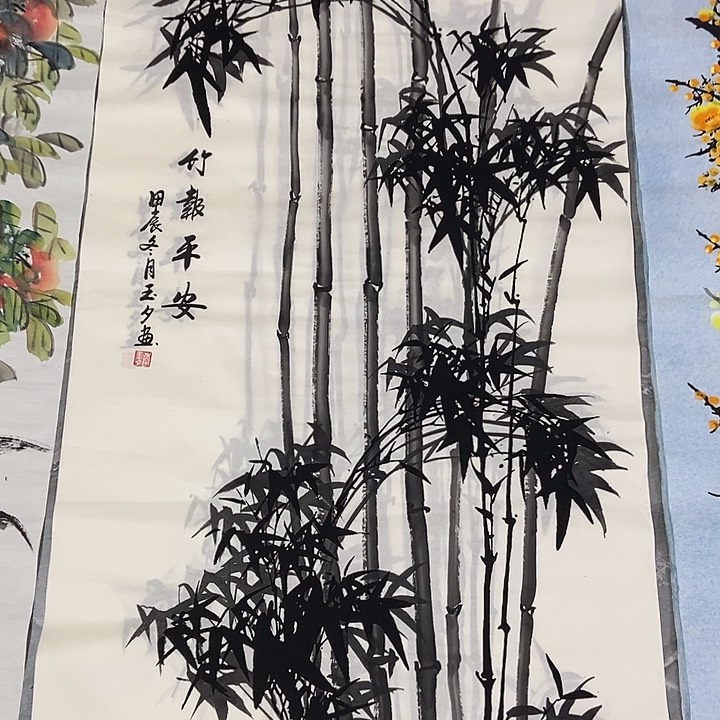 竹報平安
甲辰冬月玉夕畫